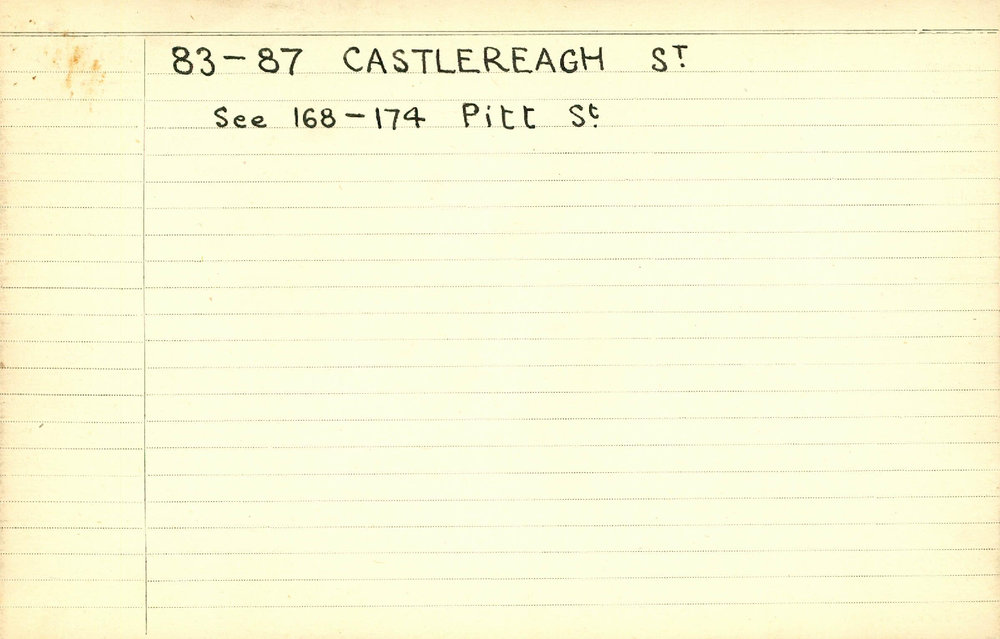 83-87 CASTLEREAGH ST.
See 168-174 Pitt St.